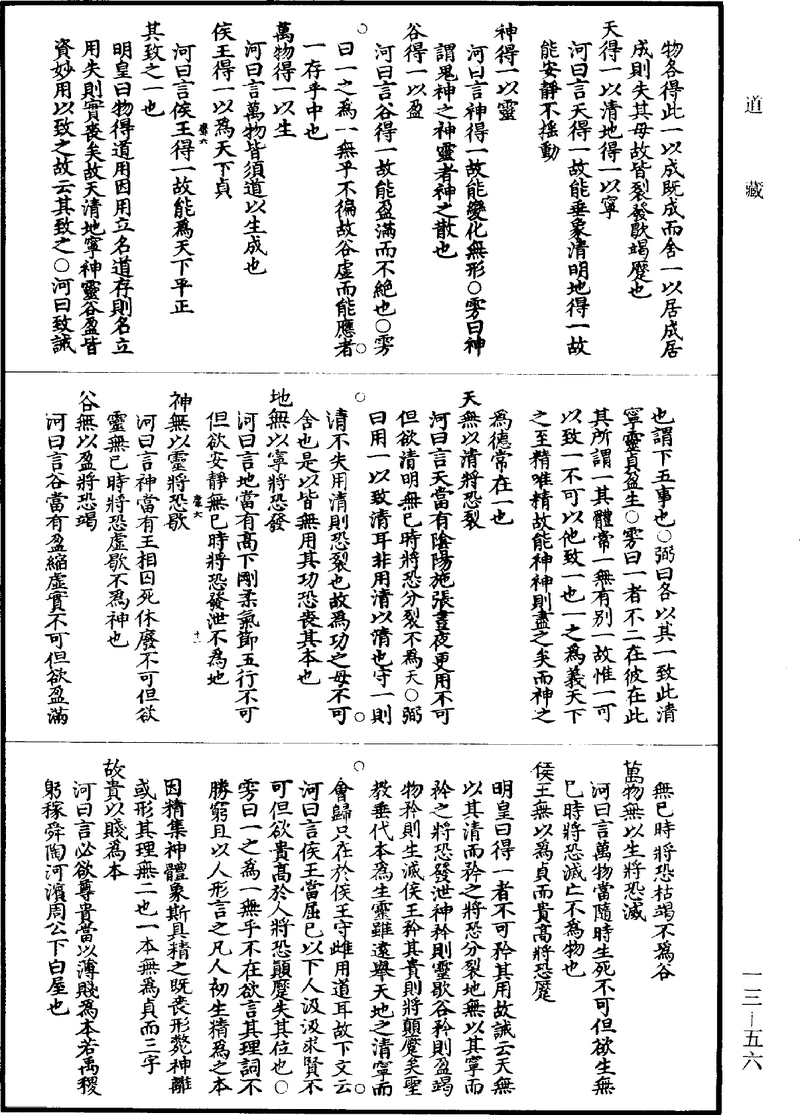 道藏
物各得此一以成既成而舍一以居成居
成則失其母故皆裂發歇竭蹷也
天得一以清地得一以寧
河曰言天得一故能垂象清明地得一故
能安靜不搖動
神得一以靈
河曰言神得一故能變化無形○雱曰神
謂鬼神之神靈者神之散也
谷得一以盈
河曰言谷得一故能盈滿而不絶也○雱
曰一之爲一無乎不徧故谷虛而能應者
一存乎中也
萬物得一以生
河曰言萬物皆須道以生成也
侯王得一以爲天下貞
河曰言侯王得一故能爲天下平正
其致之一也
明皇曰物得道用因用立名道存則名立
用失則實喪矣故天清地寧神靈谷盈皆
資妙用以致之故云其致之○河曰致誡
也謂下五事也○弼曰各以其一致此清
寧靈貞盈生○雱曰一者不二在彼在此
其所謂一其體常一無有別一故惟一可
以致一不可以他致一也一之爲義天下
之至精唯精故能神神則盡之矣而神之
爲德常在一也
天無以清將恐裂
河曰言天當有陰陽施張晝夜更用不可
但欲清明無已時將恐分裂不爲天○弼
曰用一以致清耳非用清以清也守一則
清不失用清則恐裂也故爲功之母不可
舍也是以皆無用其功恐喪其本也
地無以寧將恐發
河曰言地當有高下剛柔氣節五行不可
但欲安靜無已時將恐發泄不爲地
神無以靈將恐歇
河曰言神當有王相囚死休廢不可但欲
靈無已時將恐虛歇不爲神也
谷無以盈將恐竭
河曰言谷當有盈縮虛實不可但欲盈滿
無已時將恐枯竭不爲谷
萬物無以生將恐滅
河曰言萬物當隨時生死不可但欲生無
已時將恐滅亡不爲物也
侯王無以爲貞而貴高將恐蹷
明皇曰得一者不可矜其用故誡云天無
以其清而矜之將恐分裂地無以其寧而
矜之將恐發泄神矜則靈歇谷矜則盈竭
物矜則生滅侯王矜其貴則將顛蹷矣聖
教垂代本爲生靈雖遠舉天地之清寧而
會歸只在於侯王守雌用道耳故下文云
河曰言侯王當屈已以下人汲汲求賢不
可但欲貴高於人將恐顛蹷失其位也○
雱曰一之爲一無乎不在欲言其理詞不
勝窮且以人形言之凡人初生精爲之本
因精集神體象斯具精之既喪形斃神離
或形其理無二也一本無爲貞而三字
故貴以賤爲本
河曰言必欲尊貴當以薄賤爲本若禹稷
躬稼舜陶河濱周公下白屋也
一三—五六